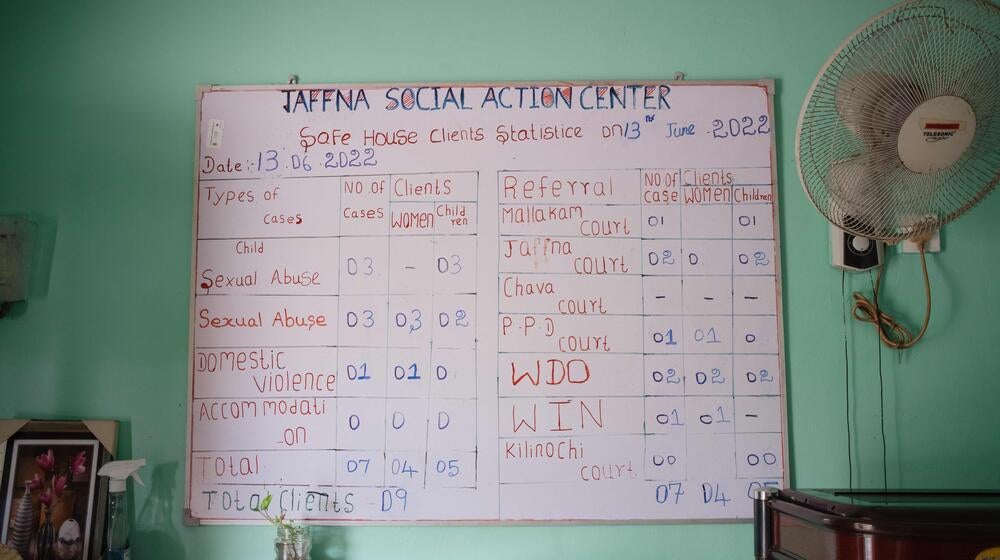 JAFFNA SOCIAL ACTION CENTER
Safe House Clients Statistice on 13th June - 2022
Date:- 13.06.2022
Types of cases | No of Cases | Clients | Women | Children
Child Sexual Abuse | 03 | - | 03
Sexual Abuse | 03 | 03 | 02
Domestic Violence | 01 | 01 | 0
Accommodati-on | 0 | 0 | 0
Total | 07 | 04 | 05
Total Clients - 09
Referral | No of case | Clients | Women | Children
Mallakam court | 01 | | 01
Jaffna court | 02 | 0 | 02
Chava court | - | - | -
P.P.D court | 01 | 01 | 0
WDO | 02 | 02 | 02
WIN | 01 | 01 | -
Kilinochi court | 00 | | 00
07 04 05
TELESONIC